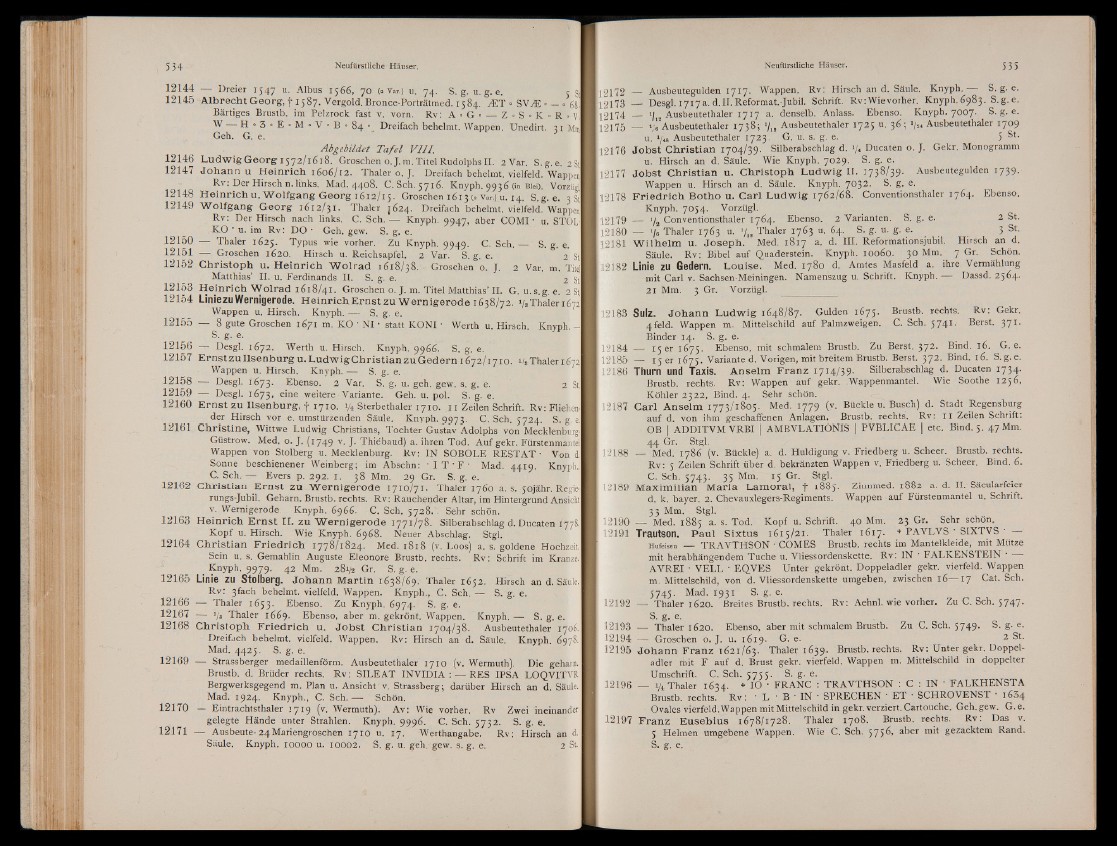 534 Neufürstliche Häuser.
12144 — Dreier 1547 u. Albus 1566, 70 (2 Var.) u. 74. S. g. u. g. e. 5 St
12145 Albrecht Georg, † 1587. Vergold. Bronce-Porträtmed. 1584. ÆT ∘ SVÆ ∘ — ∘ 68.
Bärtiges Brustb. im Pelzrock fast v. vorn. Rv: A ∘ G ∘ — Z ∘ S ∘ K ∘ R ∘ V
W — H ∘ Ƶ ∘ E ∘ M ∘ V ∘ B ∘ 84 ∘ Dreifach behelmt. Wappen. Unedirt. 31 Mm.
Geh. G. e.
Abgebildet Tafel VIII.
12146 Ludwig Georg 1572/1618. Groschen o. J. m. Titel Rudolphs II. 2 Var. S. g. e. 2 St
12147 Johann u Heinrich 1606/12. Thaler o. J. Dreifach behelmt, vielfeld. Wappen
Rv: Der Hirsch n. links. Mad. 4408. C. Sch. 5716. Knyph. 9936 (in Blei). Vorzügl.
12148 Heinrich u. Wolfgang Georg 1612/15. Groschen 1613 (2 Var.) u. 14. S. g. e. 3 St
12149 Wolfgang Georg 1612/31. Thaler 1624. Dreifach behelmt, vielfeld. Wappen
Rv: Der Hirsch nach links. C. Sch. — Knyph. 9947, aber COMI · u. STOL
KO · u. im Rv: DO · Geh. gew. S. g. e.
12150 — Thaler 1625. Typus wie vorher. Zu Knyph. 9949. C. Sch. — S. g. e.
12151 — Groschen 1620. Hirsch u. Reichsapfel. 2 Var. S. g. e. 2 St
12152 Christoph u. Heinrich Wolrad 1618/38. Groschen o. J. 2 Var. m. Titel
Matthias' II. u. Ferdinands II. S. g. e. 2 St
12153 Heinrich Wolrad 1618/41. Groschen o. J. m. Titel Matthias' II. G. u. s. g. e. 2 St
12154 Linie zu Wernigerode. Heinrich Ernst zu Wernigerode 1638/72. ½ Thaler 1672
Wappen u. Hirsch. Knyph. — S. g. e.
12155 — 8 gute Groschen 1671 m. KO · NI · statt KONI · Werth u. Hirsch. Knyph. —
S. g. e.
12156 — Desgl. 1672. Werth u. Hirsch. Knyph. 9966. S. g. e.
12157 Ernst zu Ilsenburg u. Ludwig Christian zu Gedern 1672/1710. ⅔ Thaler 1672
Wappen u. Hirsch. Knyph. — S. g. e.
12158 — Desgl. 1673. Ebenso. 2 Var. S. g. u. geh. gew. s. g. e. 2 St
12159 — Desgl. 1673, eine weitere Variante. Geh. u. pol. S. g. e.
12160 Ernst zu Ilsenburg, † 1710. ¼ Sterbethaler 1710. 11 Zeilen Schrift. Rv: Fliehen-
der Hirsch vor e. umstürzenden Säule. Knyph. 9973. C. Sch. 5724. S. g. e
12161 Christine, Wittwe Ludwig Christians, Tochter Gustav Adolphs von Mecklenburg-
Güstrow. Med. o. J. (1749 v. J. Thiébaud) a. ihren Tod. Auf gekr. Fürstenmantel
Wappen von Stolberg u. Mecklenburg. Rv: IN SOBOLE RESTAT · Von d.
Sonne beschienener Weinberg; im Abschn: · I T · F · Mad. 4419. Knyph.
C. Sch. — Evers p. 292. 1. 38 Mm. 29 Gr. S. g. e.
12162 Christian Ernst zu Wernigerode 1710/71. Thaler 1760 a. s. 50jähr. Regie-
rungs-Jubil. Geharn. Brustb. rechts. Rv: Rauchender Altar, im Hintergrund Ansicht
v. Wernigerode Knyph. 6966. C. Sch. 5728. Sehr schön.
12163 Heinrich Ernst II. zu Wernigerode 1771/78. Silberabschlag d. Ducaten 1778
Kopf u. Hirsch. Wie Knyph. 6968. Neuer Abschlag. Stgl.
12164 Christian Friedrich 1778/1824. Med. 1818 (v. Loos) a. s. goldene Hochzeit.
Sein u. s. Gemahlin Auguste Eleonore Brustb. rechts. Rv: Schrift im Kranze.
Knyph. 9979. 42 Mm. 28½ Gr. S. g. e.
12165 Linie zu Stolberg. Johann Martin 1638/69. Thaler 1652. Hirsch an d. Säule.
Rv: 3fach behelmt. vielfeld. Wappen. Knyph., C. Sch. — S. g. e.
12166 — Thaler 1653. Ebenso. Zu Knyph. 6974. S. g. e.
12167 — ⅔ Thaler 1669. Ebenso, aber m. gekrönt. Wappen. Knyph. — S. g. e.
12168 Christoph Friedrich u. Jobst Christian 1704/38. Ausbeutethaler 1706.
Dreifach behelmt. vielfeld. Wappen. Rv: Hirsch an d. Säule. Knyph. 6978.
Mad. 4425. S. g. e.
12169 — Strassberger medaillenförm. Ausbeutethaler 1710 (v. Wermuth). Die geharn.
Brustb. d. Brüder rechts. Rv: SILEAT INVIDIA : — RES IPSA LOQVITVR.
Bergwerksgegend m. Plan u. Ansicht v. Strassberg; darüber Hirsch an d. Säule.
Mad. 1924. Knyph., C. Sch. — Schön.
12170 — Eintrachtsthaler 1719 (v. Wermuth). Av: Wie vorher. Rv Zwei ineinander
gelegte Hände unter Strahlen. Knyph. 9996. C. Sch. 5732. S. g. e.
12171 — Ausbeute-24 Mariengroschen 1710 u. 17. Werthangabe. Rv: Hirsch an d.
Säule. Knyph. 10000 u. 10002. S. g. u. geh. gew. s. g. e. 2 St.
Neufürstliche Häuser. 535
12172 — Ausbeutegulden 1717. Wappen. Rv: Hirsch an d. Säule. Knyph. — S. g. e.
12173 — Desgl. 1717 a. d. II. Reformat.-Jubil. Schrift. Rv: Wie vorher. Knyph. 6983. S. g. e.
12174 — 1/12 Ausbeutethaler 1717 a. denselb. Anlass. Ebenso. Knyph. 7007. S. g. e.
12175 — 1/6 Ausbeutethaler 1738; 1/12 Ausbeutethaler 1725 u. 36; 1/24 Ausbeutethaler 1709
u. 1/48 Ausbeutethaler 1723 G. u. s. g. e. 5 St.
12176 Jobst Christian 1704/39. Silberabschlag d. ¼ Ducaten o. J. Gekr. Monogramm
u. Hirsch an d. Säule. Wie Knyph. 7029. S. g. e.
12177 Jobst Christian u. Christoph Ludwig II. 1738/39. Ausbeutegulden 1739.
Wappen u. Hirsch an d. Säule. Knyph. 7032. S. g. e.
12178 Friedrich Botho u. Carl Ludwig 1762/68. Conventionsthaler 1764. Ebenso.
Knyph. 7054. Vorzügl.
12179 — ½ Conventionsthaler 1764. Ebenso. 2 Varianten. S. g. e. 2 St.
12180 — 1/6 Thaler 1763 u. 1/12 Thaler 1763 u. 64. S. g. u. g. e. 3 St.
12181 Wilhelm u. Joseph. Med. 1817 a. d. III. Reformationsjubil. Hirsch an d.
Säule. Rv: Bibel auf Quaderstein. Knyph. 10060. 30 Mm. 7 Gr. Schön.
12182 Linie zu Gedern. Louise. Med. 1780 d. Amtes Masfeld a. ihre Vermählung
mit Carl v. Sachsen-Meiningen. Namenszug u. Schrift. Knyph. — Dassd. 2564.
21 Mm. 3 Gr. Vorzügl.
12183 Sulz. Johann Ludwig 1648/87. Gulden 1675. Brustb. rechts. Rv: Gekr.
4 feld. Wappen m. Mittelschild auf Palmzweigen. C. Sch. 5741. Berst. 371.
Binder 14. S. g. e.
12184 — 15 er 1675. Ebenso, mit schmalem Brustb. Zu Berst. 372. Bind. 16. G. e.
12185 — 15 er 1675. Variante d. Vorigen, mit breitem Brustb. Berst. 372. Bind. 16. S. g. e.
12186 Thurn und Taxis. Anselm Franz 1714/39. Silberabschlag d. Ducaten 1734.
Brustb. rechts. Rv: Wappen auf gekr. Wappenmantel. Wie Soothe 1256.
Köhler 2322. Bind. 4. Sehr schön.
12187 Carl Anselm 1773/1805. Med. 1779 (v. Bückle u. Busch) d. Stadt Regensburg
auf d. von ihm geschaffenen Anlagen. Brustb. rechts. Rv: 11 Zeilen Schrift:
OB | ADDITVM VRBI | AMBVLATIONIS | PVBLICAE | etc. Bind. 5. 47 Mm.
44 Gr. Stgl.
12188 — Med. 1786 (v. Bückle) a. d. Huldigung v. Friedberg u. Scheer. Brustb. rechts.
Rv: 5 Zeilen Schrift über d. bekränzten Wappen v. Friedberg u. Scheer. Bind. 6.
C. Sch. 5743. 35 Mm. 15 Gr. Stgl.
12189 Maximilian Maria Lamoral, † 1885. Zinnmed. 1882 a. d. II. Säcularfeier
d. k. bayer. 2. Chevauxlegers-Regiments. Wappen auf Fürstenmantel u. Schrift.
33 Mm. Stgl.
12190 — Med. 1885 a. s. Tod. Kopf u. Schrift. 40 Mm. 23 Gr. Sehr schön.
12191 Trautson. Paul Sixtus 1615/21. Thaler 1617. + PAVLVS · SIXTVS · —
Hufeisen — TRAVTHSON · COMES Brustb. rechts im Mantelkleide, mit Mütze
mit herabhängendem Tuche u. Vliessordenskette. Rv: IN · FALKENSTEIN · —
AVREI · VELL · EQVES Unter gekrönt. Doppeladler gekr. vierfeld. Wappen
m. Mittelschild, von d. Vliessordenskette umgeben, zwischen 16—17 Cat. Sch.
5745. Mad. 1931 S. g. e.
12192 — Thaler 1620. Breites Brustb. rechts. Rv: Aehnl. wie vorher. Zu C. Sch. 5747.
S. g. e.
12193 — Thaler 1620. Ebenso, aber mit schmalem Brustb. Zu C. Sch. 5749. S. g. e.
12194 — Groschen o. J. u. 1619. G. e. 2 St.
12195 Johann Franz 1621/63. Thaler 1639. Brustb. rechts. Rv: Unter gekr. Doppel-
adler mit F auf d. Brust gekr. vierfeld. Wappen m. Mittelschild in doppelter
Umschrift. C. Sch. 5755. S. g. e.
12196 — ¼ Thaler 1634. + IO · FRANC : TRAVTHSON : C : IN · FALKHENSTA
Brustb. rechts. Rv: · L · B · IN · SPRECHEN · ET · SCHROVENST · 1634
Ovales vierfeld. Wappen mit Mittelschild in gekr. verziert. Cartouche. Geh. gew. G. e.
12197 Franz Eusebius 1678/1728. Thaler 1708. Brustb. rechts. Rv: Das v.
5 Helmen umgebene Wappen. Wie C. Sch. 5756, aber mit gezacktem Rand.
S. g. e.